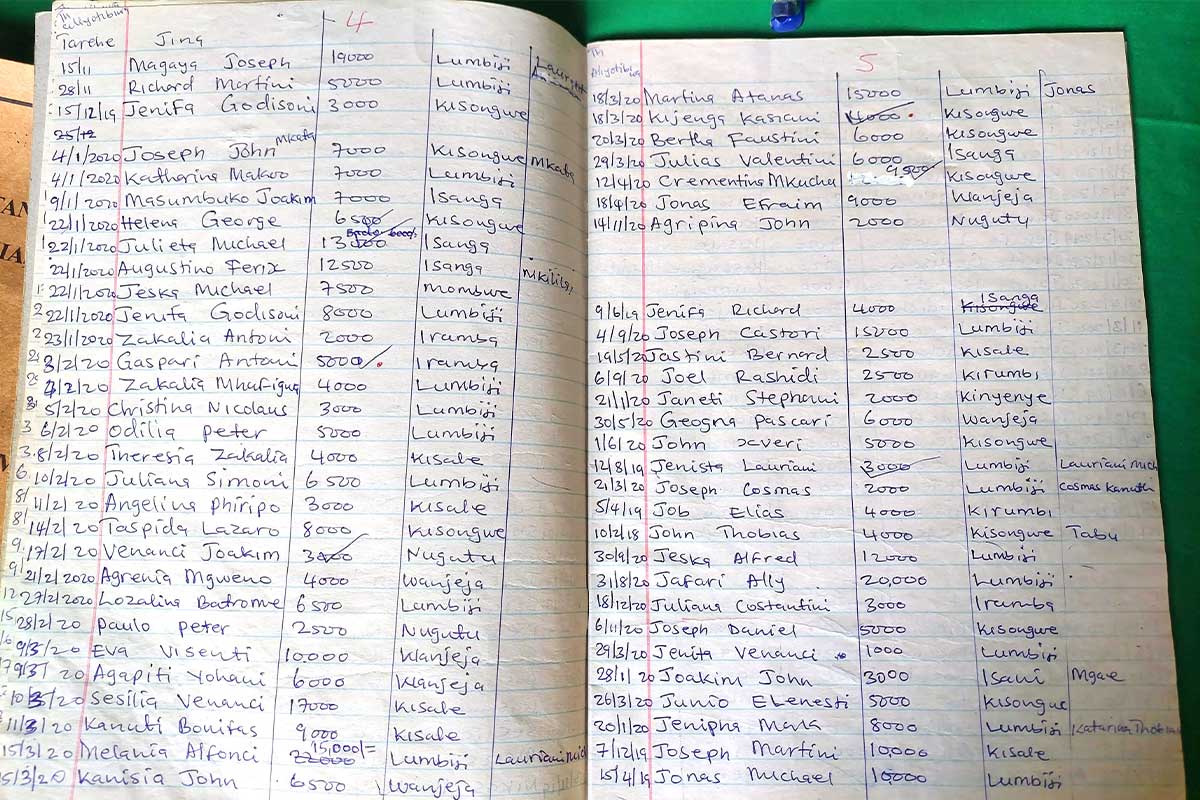 4
Tarehe Jina
15/11 Magaya Joseph 19000 Lumbiji
28/11 Richard Martini 5000 Lumbiji
15/12/19 Jenifa Godisoni 3000 Kisongwe
25/12
4/1/2020 Joseph John Mkata 7000 Kisongwe Mkata
4/1/2020 Katharina Makoo 7000 Lumbiji
9/1/2020 Masumbuko Joakim 7000 Isanga
22/1/2020 Helena George 6500 Kisongwe
22/1/2020 Julieta Michael 13500 Isanga
22/1/2020 Augustino Ferix 12500 Isanga Mkilisi
22/1/2020 Jeska Michael 7500 Mombwe
22/1/2020 Jenifa Godisoni 8000 Lumbiji
23/1/2020 Zakalia Antoni 2000 Iramba
3/2/20 Gaspari Antoni 5000/ Iramba
4/2/20 Zakalia Mhafigwa 4000 Lumbiji
5/2/20 Christina Nicolaus 3000 Lumbiji
6/2/20 Odilia Peter 5000 Lumbiji
8/2/20 Theresia Zakalia 4000 Kisale
10/2/20 Juliana Simoni 6500 Lumbiji
11/2/20 Angelina Phiripo 3000 Kisale
14/2/20 Taspida Lazaro 8000 Kisongwe
17/2/20 Venanci Joakim 3000 Nugutu
21/2/2020 Agrenia Mgweno 4000 Wanjeja
27/2/2020 Lozalina Batrome 6500 Lumbiji
28/2/20 Paulo Peter 2500 Nugutu
9/3/20 Eva Visenti 10.000 Wanjeja
9/3/20 Agapiti Yohani 6000 Wanjeja
10/3/20 Sesilia Venanci 17000 Kisale
11/3/20 Kanuti Bonifas 9000 Kisale
15/3/20 Melania Alfonci 22000 15,000/= Lumbiji Lauriani
15/3/20 Kanisia John 6500 Wanjeja
5
18/3/20 Martina Atanas 15000 Lumbiji Jonas
18/3/20 Kijenga Kasiani 4000 Kisongwe
20/3/20 Bertha Faustini 6000 Kisongwe
29/3/20 Julias Valentini 6000 Isanga
12/4/20 Crementina Mkucha 9500 Kisongwe
18/4/20 Jonas Efraim 9000 Wanjeja
14/11/20 Agripina John 2000 Nugutu
9/6/19 Jenifa Richard 4000 Kisongwe Isanga
4/9/20 Joseph Castori 15200 Lumbiji
19/5/20 Jastini Bernard 2500 Kisale
6/9/20 Joel Rashidi 2500 Kirumbi
21/1/20 Janeti Stephani 2000 Kinyenye
30/5/20 Geogna Pascari 6000 Wanjeja
1/6/20 John Xaveri 5000 Kisongwe
12/8/19 Jenista Lauriani 3000 Lumbiji Lauriani Mich
21/3/20 Joseph Cosmas 2000 Lumbiji Cosmas Kanuth
5/4/19 Job Elias 4000 Kirumbi
10/2/18 John Thobias 4000 Kisongwe Tabu
30/9/20 Jeska Alfred 12000 Lumbiji
31/8/20 Jafari Ally 20,000 Lumbiji
18/12/20 Juliana Costantini 3000 Iramba
6/11/20 Joseph Daniel 5000 Kisongwe
29/3/20 Jenita Venanci 1000 Lumbiji
28/11/20 Joakim John 3000 Isani Mgae
26/3/20 Junio Elenesti 5000 Kisongwe
20/1/20 Jenipha Mana 8000 Lumbiji Katarina Thobias
7/12/19 Joseph Martini 10,000 Kisale
15/4/19 Jonas Michael 10000 Lumbiji